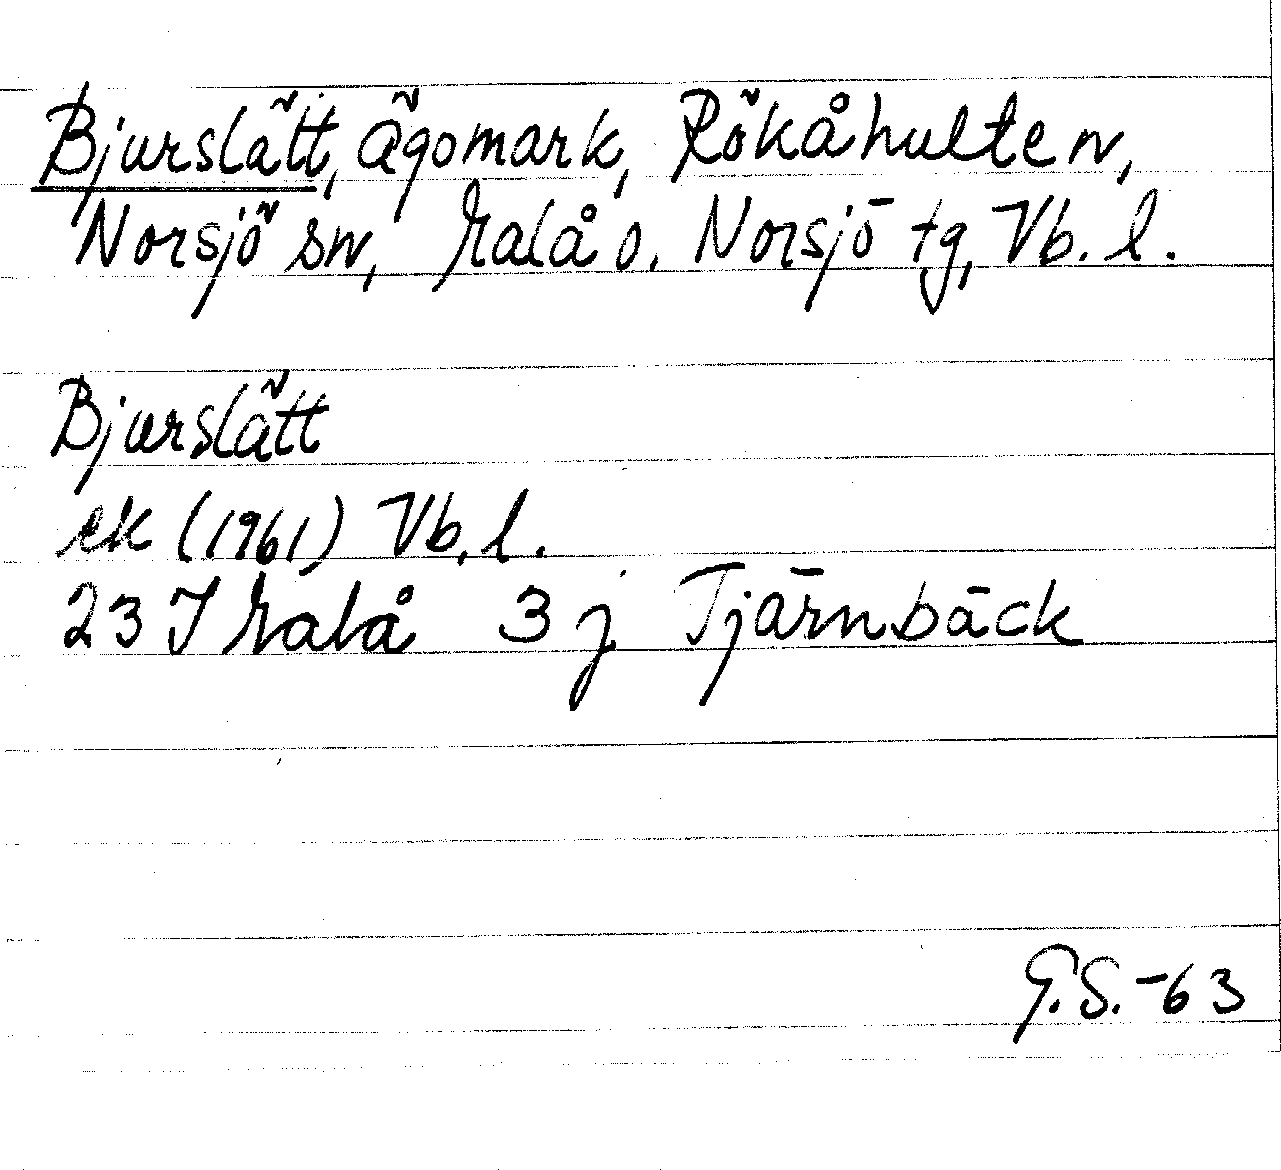 Bjurslätt, ägomark, Rökåhulten,
Norsjö sn, Malå o. Norsjö tg, Vb. l.
Bjurslätt
ek (1961) Vb. l.
23 I Malå 3 j Tjärnbäck
G.S. -63